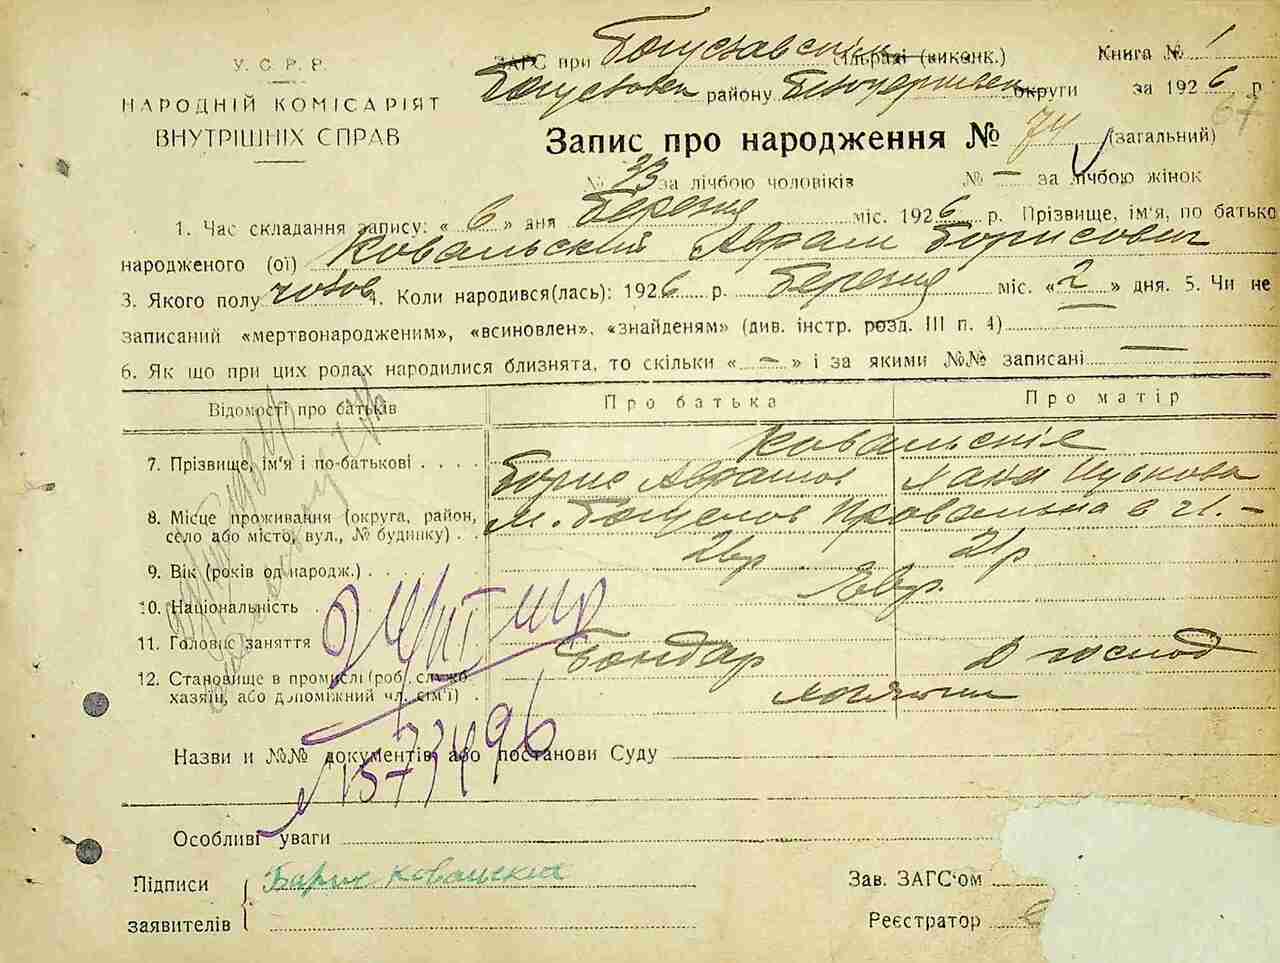 У. С. Р. Р.
НАРОДНІЙ КОМІСАРІЯТ
ВНУТРІШНІХ СПРАВ
ЗАГС при Богуславскім сільраді (виконк.) Книга № 1
Богуславск району Білоцерківськ округи за 1926 р.
67
Запис про народження № 74 (загальний)
№ 33 за лічбою чоловіків № — за лічбою жінок
1. Час складання запису: « 6 » дня березня міс. 1926 р. Прізвище, ім'я, по батько
народженого (ої) Ковальский Аврам Борисович
3. Якого полу чолов 4. Коли народився(лась): 1926 р. березня міс. « 2 » дня. 5. Чи не
записаний «мертвонародженим», «всиновлен», «знайденям» (див. інстр. розд. III п. 4)
6. Як що при цих ролах народилися близнята, то скільки « — » і за якими №№ записані —
Відомості про батьків Про батька Про матір
Ковальскія
7. Прізвище, ім'я і по-батькові . . . . Борис Аврамов Хана
8. Місце проживання (округа, район, м. Богуслов Провальна 21. —
село або місто, вул., № будинку) . .
9. Вік (років од народж.) . . . . 21р
10. Національність . Євр.
11. Головне заняття Бондар Д господ
12. Становище в промислі (роб. служб
хазяїн, або допоміжний чл. сім'ї) .
Назви и №№ документів або постанови Суду
№ 573496
Особливі уваги
Підписи Борис Ковальский Зав. ЗАГС'ом
заявителів Реєстратор